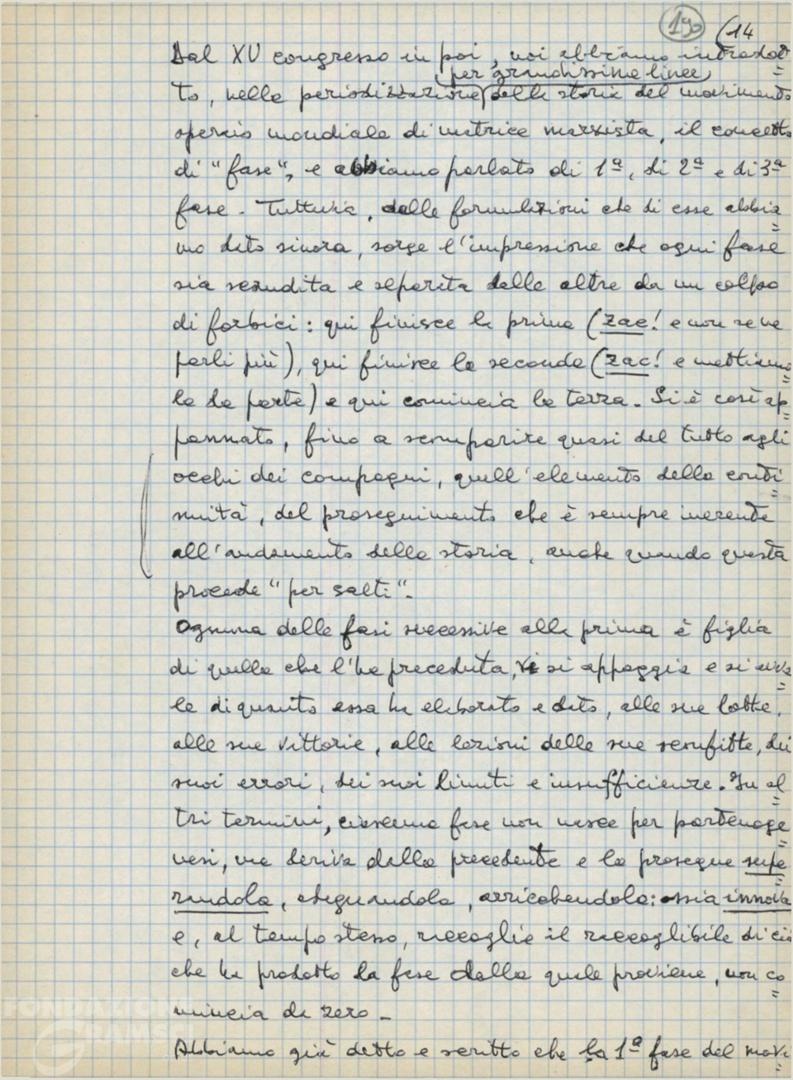 190 (14
Dal XV congresso in poi, noi abbiamo introdot=
(per grandissime linee)
to, nella periodizzazione della storia del movimento
operaio mondiale di matrice marxista, il concetto
di "fase", e abbiamo parlato di 1ª, di 2ª e di 3ª
fase. Tuttavia, dalle formulazioni che di esse abbia=
mo dato sinora, sorge l'impressione che ogni fase
sia scandita e separata dalle altre da un colpo
di forbici: qui finisce la prima (zac! e non se ne
parli più), qui finisce la seconda (zac! e mettiamo=
la da parte) e qui comincia la terza. Si è così ap=
pannato, fino a scomparire quasi del tutto agli
occhi dei compagni, quell'elemento della conti=
nuità, del proseguimento che è sempre inerente
all'andamento della storia, anche quando questa
procede "per salti".
Ognuna delle fasi successive alla prima è figlia
di quella che l'ha preceduta, vi si appoggia e si avva=
le di quanto essa ha elaborato e dato, alle sue lotte,
alle sue vittorie, alle lezioni delle sue sconfitte, dei
suoi errori, dei suoi limiti e insufficienze. In al=
tri termini, ciascuna fase non nasce per partenoge=
nesi, ma deriva dalla precedente e la prosegue supe=
randola, adeguandola, arricchendola: ossia innova
e, al tempo stesso, raccoglie il raccoglibile di ciò
che ha prodotto la fase dalla quale proviene, non co=
mincia da zero.
Abbiamo già detto e scritto che la 1ª fase del movi=
FONDAZIONE
GRAMSCI